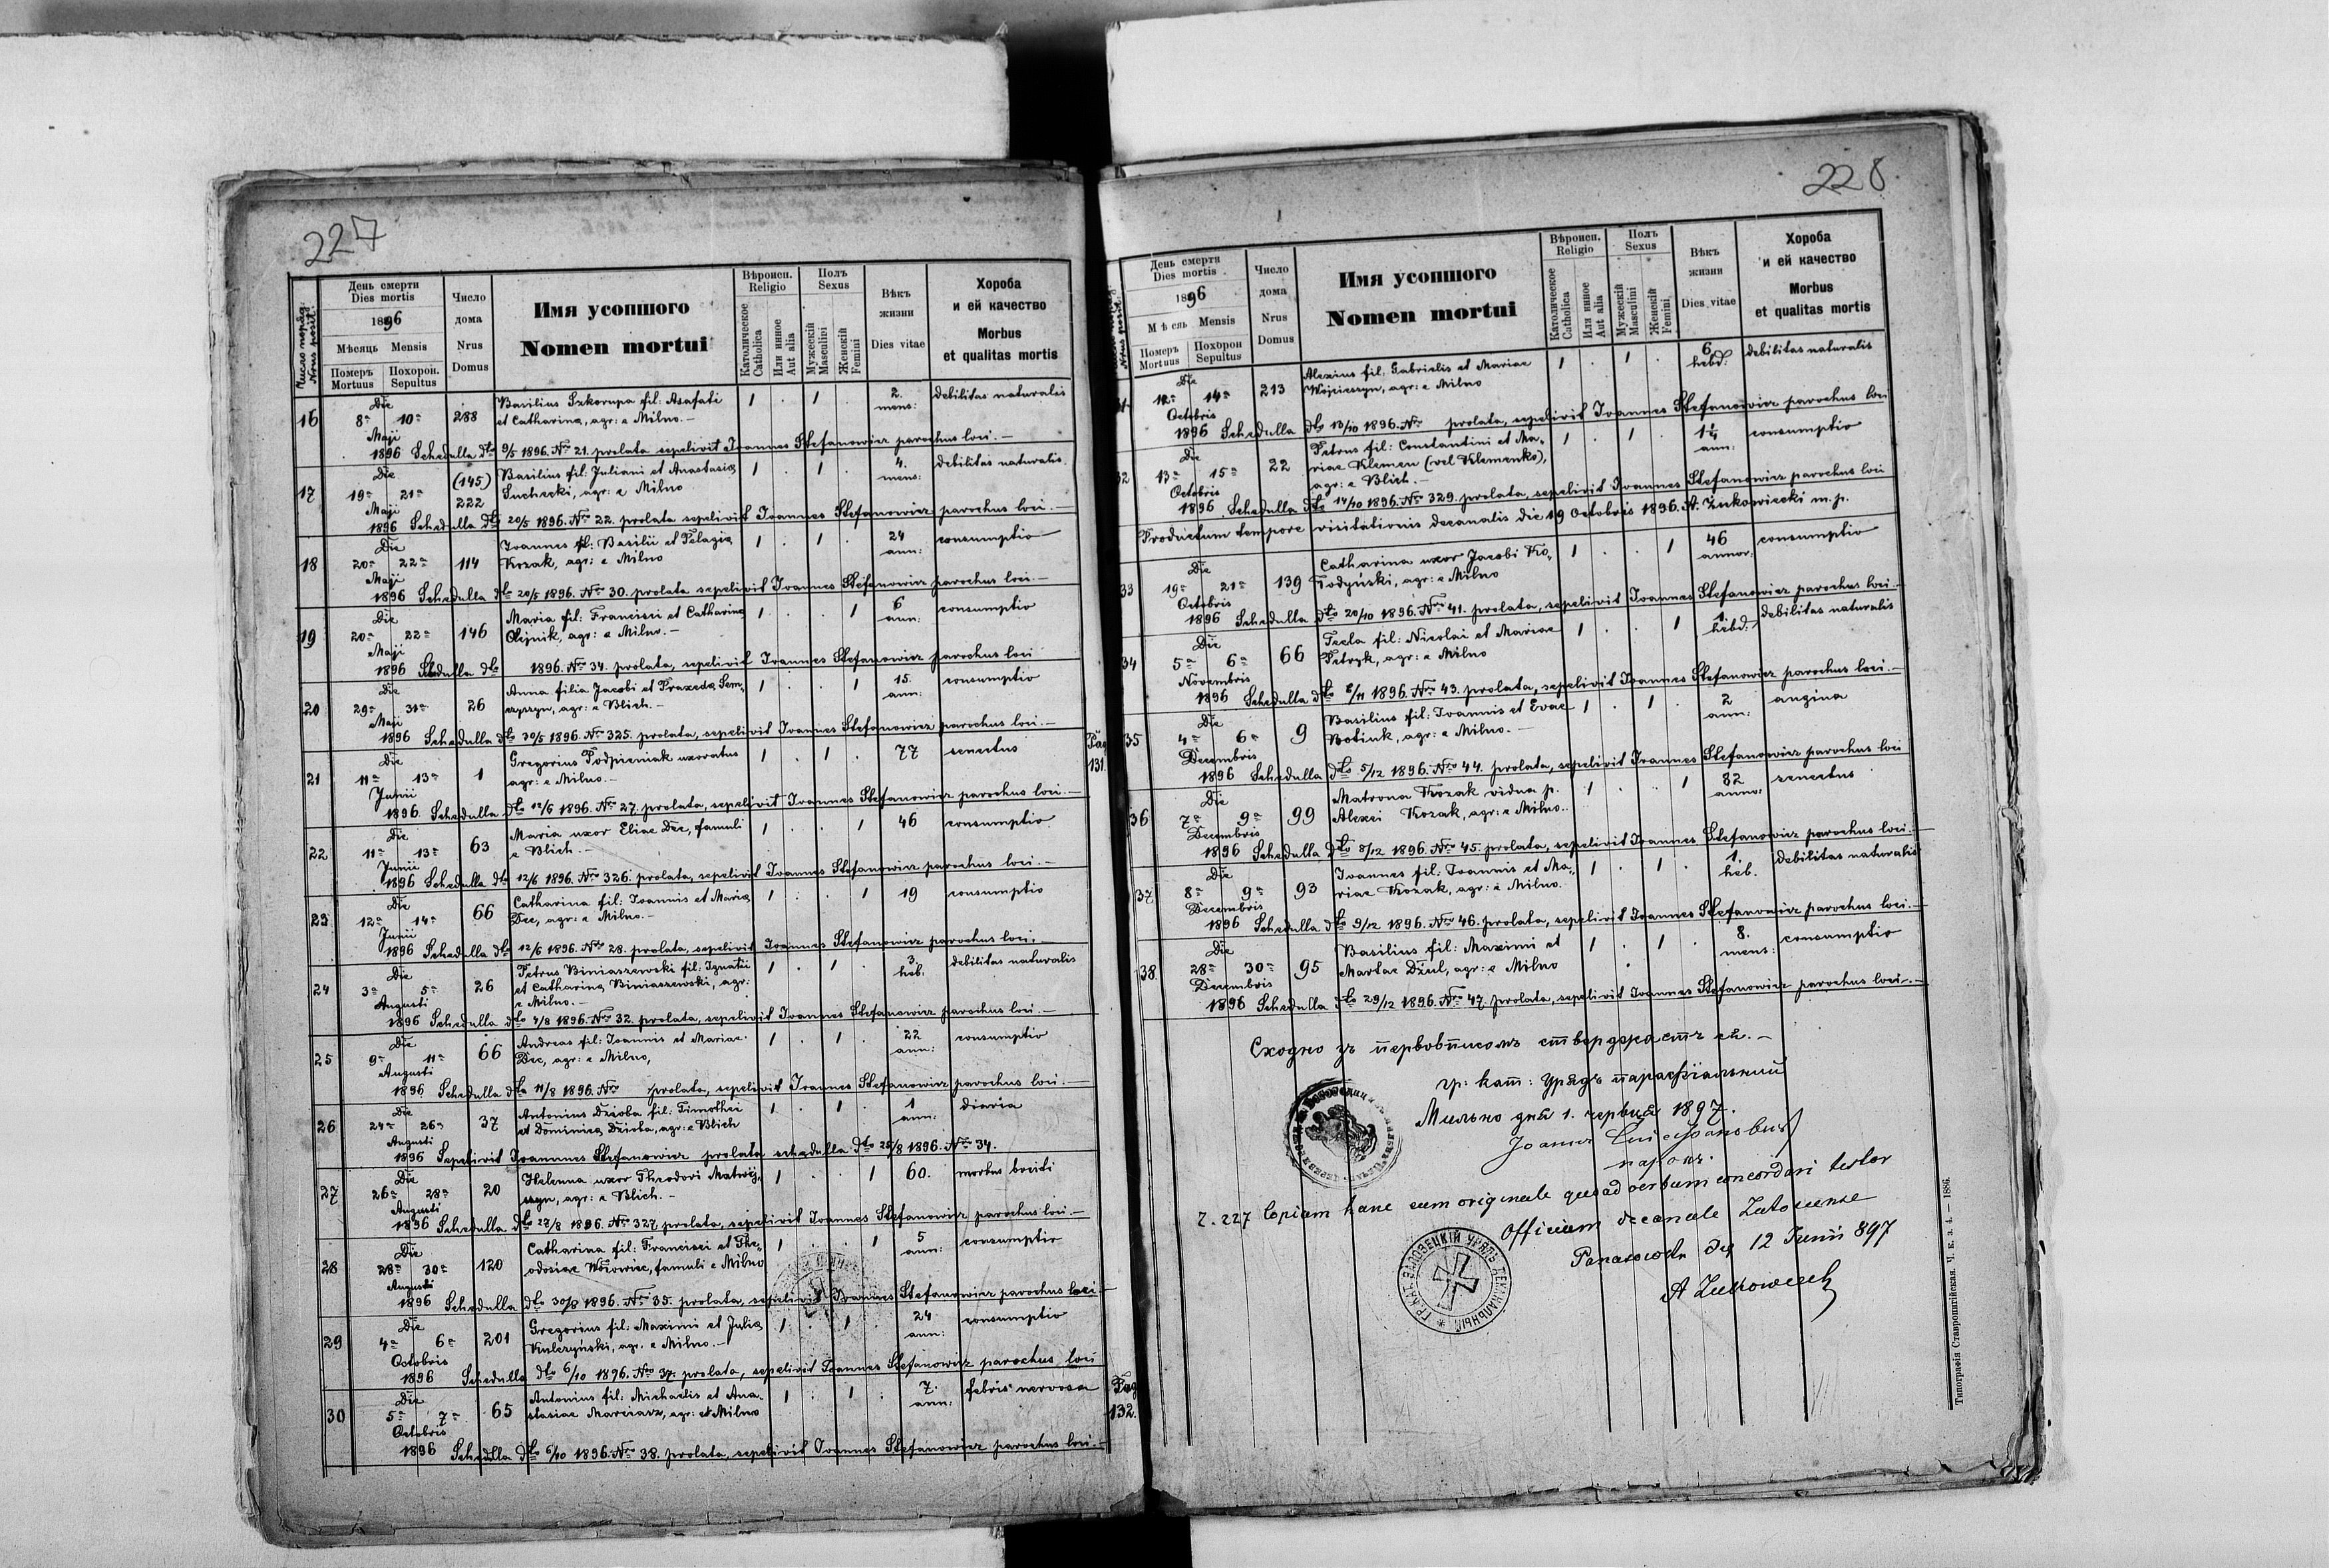 227
Число поряд. Nrus posit.
День смерти
Dies mortis
1896
Мѣсяць Mensis
Померъ Mortuus
Похорон. Sepultus
Число дома
Nrus Domus
Имя усопшого
Nomen mortui
Вѣроисп. Religio
Католическое Catholica
Или инное Aut alia
Полъ Sexus
Мужескій Masculini
Женскій Femini
Вѣкъ жизни
Dies vitae
Хороба и ей качество
Morbus et qualitas mortis
16 Die 8a 10a Maji 288 Basilius Szkorupa fil: Asafati 1 . 1 . 2. mens: debilitas naturalis
et Catharina, agr: e Milno.–
1896 Schedulla dto 9/5 1896. Nro 21. prolata sepelivit Joannes Stefanowicz parochus loci.–
17 Die 19a 21a Maji (145) 222 Basilius fil: Juliani et Anastasia 1 . 1 . 4. mens: debilitas naturalis.
Suchecki, agr: e Milno
1896 Schedulla dto 20/5 1896. Nro 22. prolata sepelivit Joannes Stefanowicz parochus loci.–
18 Die 20a 22a Maji 114 Joannes fil: Basilii et Pelagia 1 . 1 . 24 ann: consumptio
Kozak, agr: e Milno
1896 Schedulla dto 20/5 1896. Nro 30. prolata sepelivit Joannes Stefanowicz parochus loci.–
19 Die 20a 22a Maji 146 Maria fil: Francisci et Catharina 1 . . 1 6 ann: consumptio
Olejnik, agr: e Milno.–
1896 Schedulla dto 1896. Nro 34. prolata, sepelivit Joannes Stefanowicz parochus loci
20 Die 29a 31a Maji 26 Anna filia Jacobi et Praxeda Sem, 1 . . 1 15. ann: consumptio
czyszyn, agr: e Blich.–
1896 Schedulla dto 30/5 1896. Nro 325. prolata, sepelivit Joannes Stefanowicz parochus loci.–
21 Die 11a 13a Junii 1 Gregorius Podpieniak uxoratus 1 . 1 . 77 senectus
agr: e Milno.–
Pag 131.
1896. Schedulla dto 12/6 1896. Nro 27. prolata, sepelivit Joannes Stefanowicz parochus loci.–
22 Die 11a 13a Junii 63 Maria uxor Eliae Dec, famuli 1 . . 1 46 consumptio
e Blich.–
1896 Schedulla dto 12/6 1896. Nro 326. prolata, sepelivit Joannes Stefanowicz parochus loci.–
23 Die 12a 14a Junii 66 Catharina fil: Joannis et Maria 1 . . 1 19 consumptio
Dec, agr: e Milno.–
1896 Schedulla dto 12/6 1896. Nro 28. prolata, sepelivit Joannes Stefanowicz parochus loci,
24 Die 3a 5a Augusti 26 Petrus Biniaszewski fil: Ignatii 1 . 1 . 3. heb: debilitas naturalis
et Catharina Biniaszewski, agr:
e Milno.–
1896 Schedulla dto 4/8 1896. Nro 32. prolata, sepelivit Joannes Stefanowicz parochus loci.–
25 Die 9a 11a Augusti 66 Andreas fil: Joannis et Mariae 1 . 1 . 22 ann: consumptio
Dec, agr: e Milno,
1896 Schedulla dto 11/8 1896. Nro prolata, sepelivit Joannes Stefanowicz parochus loci.–
26 Die 24a 26a Augusti 37 Antonius Dzioba fil: Timothei 1 . 1 . 1 ann: diaria
et Dominica Dzioba, agr: e Blich
1896 Sepelivit Joannnes Stefanowicz prolata schedulla dto 25/8 1896. Nro 34.
27 Die 26a 28a Augusti 20 Helenna uxor Theodori Matwij, 1 . . 1 60. morbus
szyn, agr: e Blich.–
1896 Schedulla dto 28/8 1896. Nro 327 prolata, sepelivit Joannes Stefanowicz parochus loci.–
28 Die 28a 30a Augusti 120 Catharina fil: Francisci et The, 1 . . 1 5 ann: consumptio
odosiae Wosowicz, famuli e Milno
1896 Schedulla dto 30/8 1896. Nro 35. prolata, sepelivit Joannes Stefanowicz parochus loci–
29 Die 4a 6a Octobris 201 Gregorius fil: Maximi et Julia 1 . 1 . 24 ann: consumptio
Kulczyński, agr. e Milno.–
1896 Schedulla dto 6/10 1896. Nro 37. prolata, sepelivit Joannes Stefanowicz parochus loci
30 Die 5a 7a Octobris 65 Antonius fil: Michaelis et Ana, 1 . 1 . 7. ann: febris nervosa
stasiae Marciasz, agr: e Milno
Pag 132.
1896 Schedulla dto 6/10 1896. Nro 38. prolata, sepelivit Joannes Stefanowicz parochus loci.–
228
День смерти
Dies mortis
1896
Мѣсяць Mensis
Померъ Mortuus
Похорон Sepultus
Число дома
Nrus Domus
Имя усопшого
Nomen mortui
Вѣроисп. Religio
Католическое Catholica
Или инное Aut alia
Полъ Sexus
Мужескій Masculini
Женскій Femini
Вѣкъ жизни
Dies vitae
Хороба и ей качество
Morbus et qualitas mortis
31. Die 12a 14a Octobris 213 Alexius fil: Gabrielis et Mariae 1 . 1 . 6 hebd: debilitas naturalis
Wojcieszyn, agr: e Milno
1896 Schedulla dto 13/10 1896. Nro prolata, sepelivit Joannes Stefanowicz parochus loci
32 Die 13a 15a Octobris 22 Petrus fil: Constantini et Ma, 1 . 1 . 1¼ ann: consumptio
riae Klemen (vel Klemenko),
agr: e Blich.–
1896 Schedulla dto 14/10 1896. Nro 329. prolata, sepelivit Joannes Stefanowicz parochus loci
Productum tempore visitationis decanalis die 19 Octobris 1896. A. Żukowiecki m. p.
33 Die 19a 21a Octobris 139 Catharina uxor Jacobi Ko, 1 . . 1 46 annor: consumptio
łodyński, agr: e Milno
1896 Schedulla dto 20/10 1896. Nro 41. prolata, sepelivit Joannes Stefanowicz parochus loci.–
34 Die 5a 6a Novembris 66 Tecla fil: Nicolai et Mariae 1 . . 1 1. hebd: debilitas naturalis
Petryk, agr: e Milno
1896 Schedulla dto 6/11 1896. Nro 43. prolata, sepelivit Joannes Stefanowicz parochus loci.–
35 Die 4a 6a Decembris 9 Basilius fil: Joannis et Evae 1 . 1 . 2 ann: angina
Botiuk, agr: e Milno.–
1896 Schedulla dto 5/12 1896. Nro 44. prolata, sepelivit Joannes Stefanowicz parochus loci
36 Die 7a 9a Decembris 99 Matrona Kozak vidua p. 1 . . 1 82 anno: senectus
Alexei Kozak, agr: e Milno..
1896 Schedulla dto 8/12 1896. Nro 45. prolata, sepelivit Joannes Stefanowicz parochus loci.–
37 Die 8a 9a Decembris 93 Joannes fil: Joannis et Ma, 1 . 1 . 1. heb. debilitas naturalis
riae Kozak, agr: e Milno.
1896 Schedulla dto 9/12 1896. Nro 46. prolata, sepelivit Joannes Stefanowicz parochus loci.–
38. Die 28a 30a Decembris 95 Basilius fil: Maximi et 1 . 1 . 8. mens: consumptio
Martae Dziul, agr: e Milno
1896 Schedulla dto 29/12 1896. Nro 47. prolata, sepelivit Joannes Stefanowicz parochus loci.–
Сходно зъ первописомъ стверджаєтъ ся.–
гр: кат: Урядъ парафіяльный
Мильно дня 1. червця 1897.
парохъ.
Z. 227 Copiam hanc cum originale quoad verbum concordari testor
Officium decanale Załoscense
Panasówka die 12 Junii 897
A Żukowiecki
ГР. КАТ. ЗАЛОЗЕЦКІЙ УРЯДЪ ДЕКАНАЛЬНЫЙ
Типографія Ставропигійская. Ч. к. з. 4. — 1886.